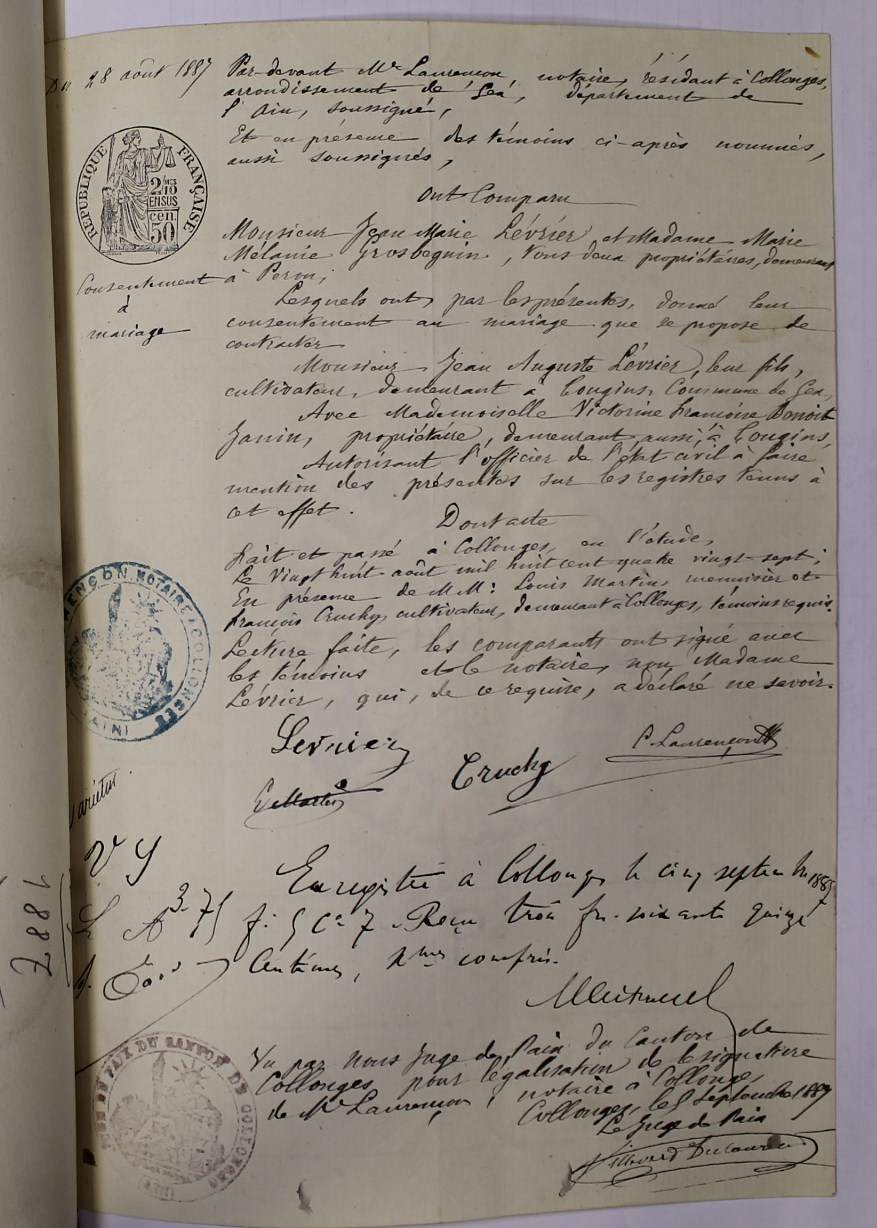 Du 28 août 1887
Par-devant Me Laurençon, notaire, résidant à Collonges,
arrondissement de Gex, département de
l'Ain, soussigné,
Et en présence des témoins ci-après nommés,
aussi soussignés,
Ont Comparu
RÉPUBLIQUE FRANÇAISE
2/10es
EN SUS
50 cen
Consentement
à
mariage
Monsieur Jean Marie Lévrier et Madame Marie
Mélanie Grosbeguin, tous deux propriétaires, demeurant
à Peron,
Lesquels ont, par les présentes, donné leur
consentement au mariage que se propose de
contracter
Monsieur Jean Auguste Lévrier, leur fils,
cultivateur, demeurant à Tougins, Commune de Gex,
Avec Mademoiselle Victorine Françoise Benoit
Janin, propriétaire, demeurant aussi, à Tougins,
Autorisant l'officier de l'état civil à faire
mention des présentes sur les registres tenus à
cet effet.
Dont acte
Fait et passé à Collonges, en l'étude,
Le Vingt huit août mil huit cent quatre vingt-sept;
En présence de MM: Louis Martin, menuisier et
François Cruchy, cultivateur, demeurant à Collonges, témoins requis.
Lecture faite, les comparants ont signé avec
les témoins et le notaire, non Madame
Lévrier, qui, de ce requise, a déclaré ne savoir.
NOTAIRE A COLLONGES
(AIN)
Levrier
L Martin
Cruchy
C. Laurençon
varietur
1887
Enregistré à Collonges le cinq septembre 1887
f: 5 Ce 7 Reçu trois fr. soixante quinze
Centimes, dmes compris.
3.75
Vu par nous Juge de Paix du Canton de
Collonges, pour légalisation de la signature
de Me Laurençon, notaire à Collonges,
Collonges, le 5 Septembre 1887
Le Juge de Paix
DE PAIX DU CANTON DE COLLONGES
(AIN)